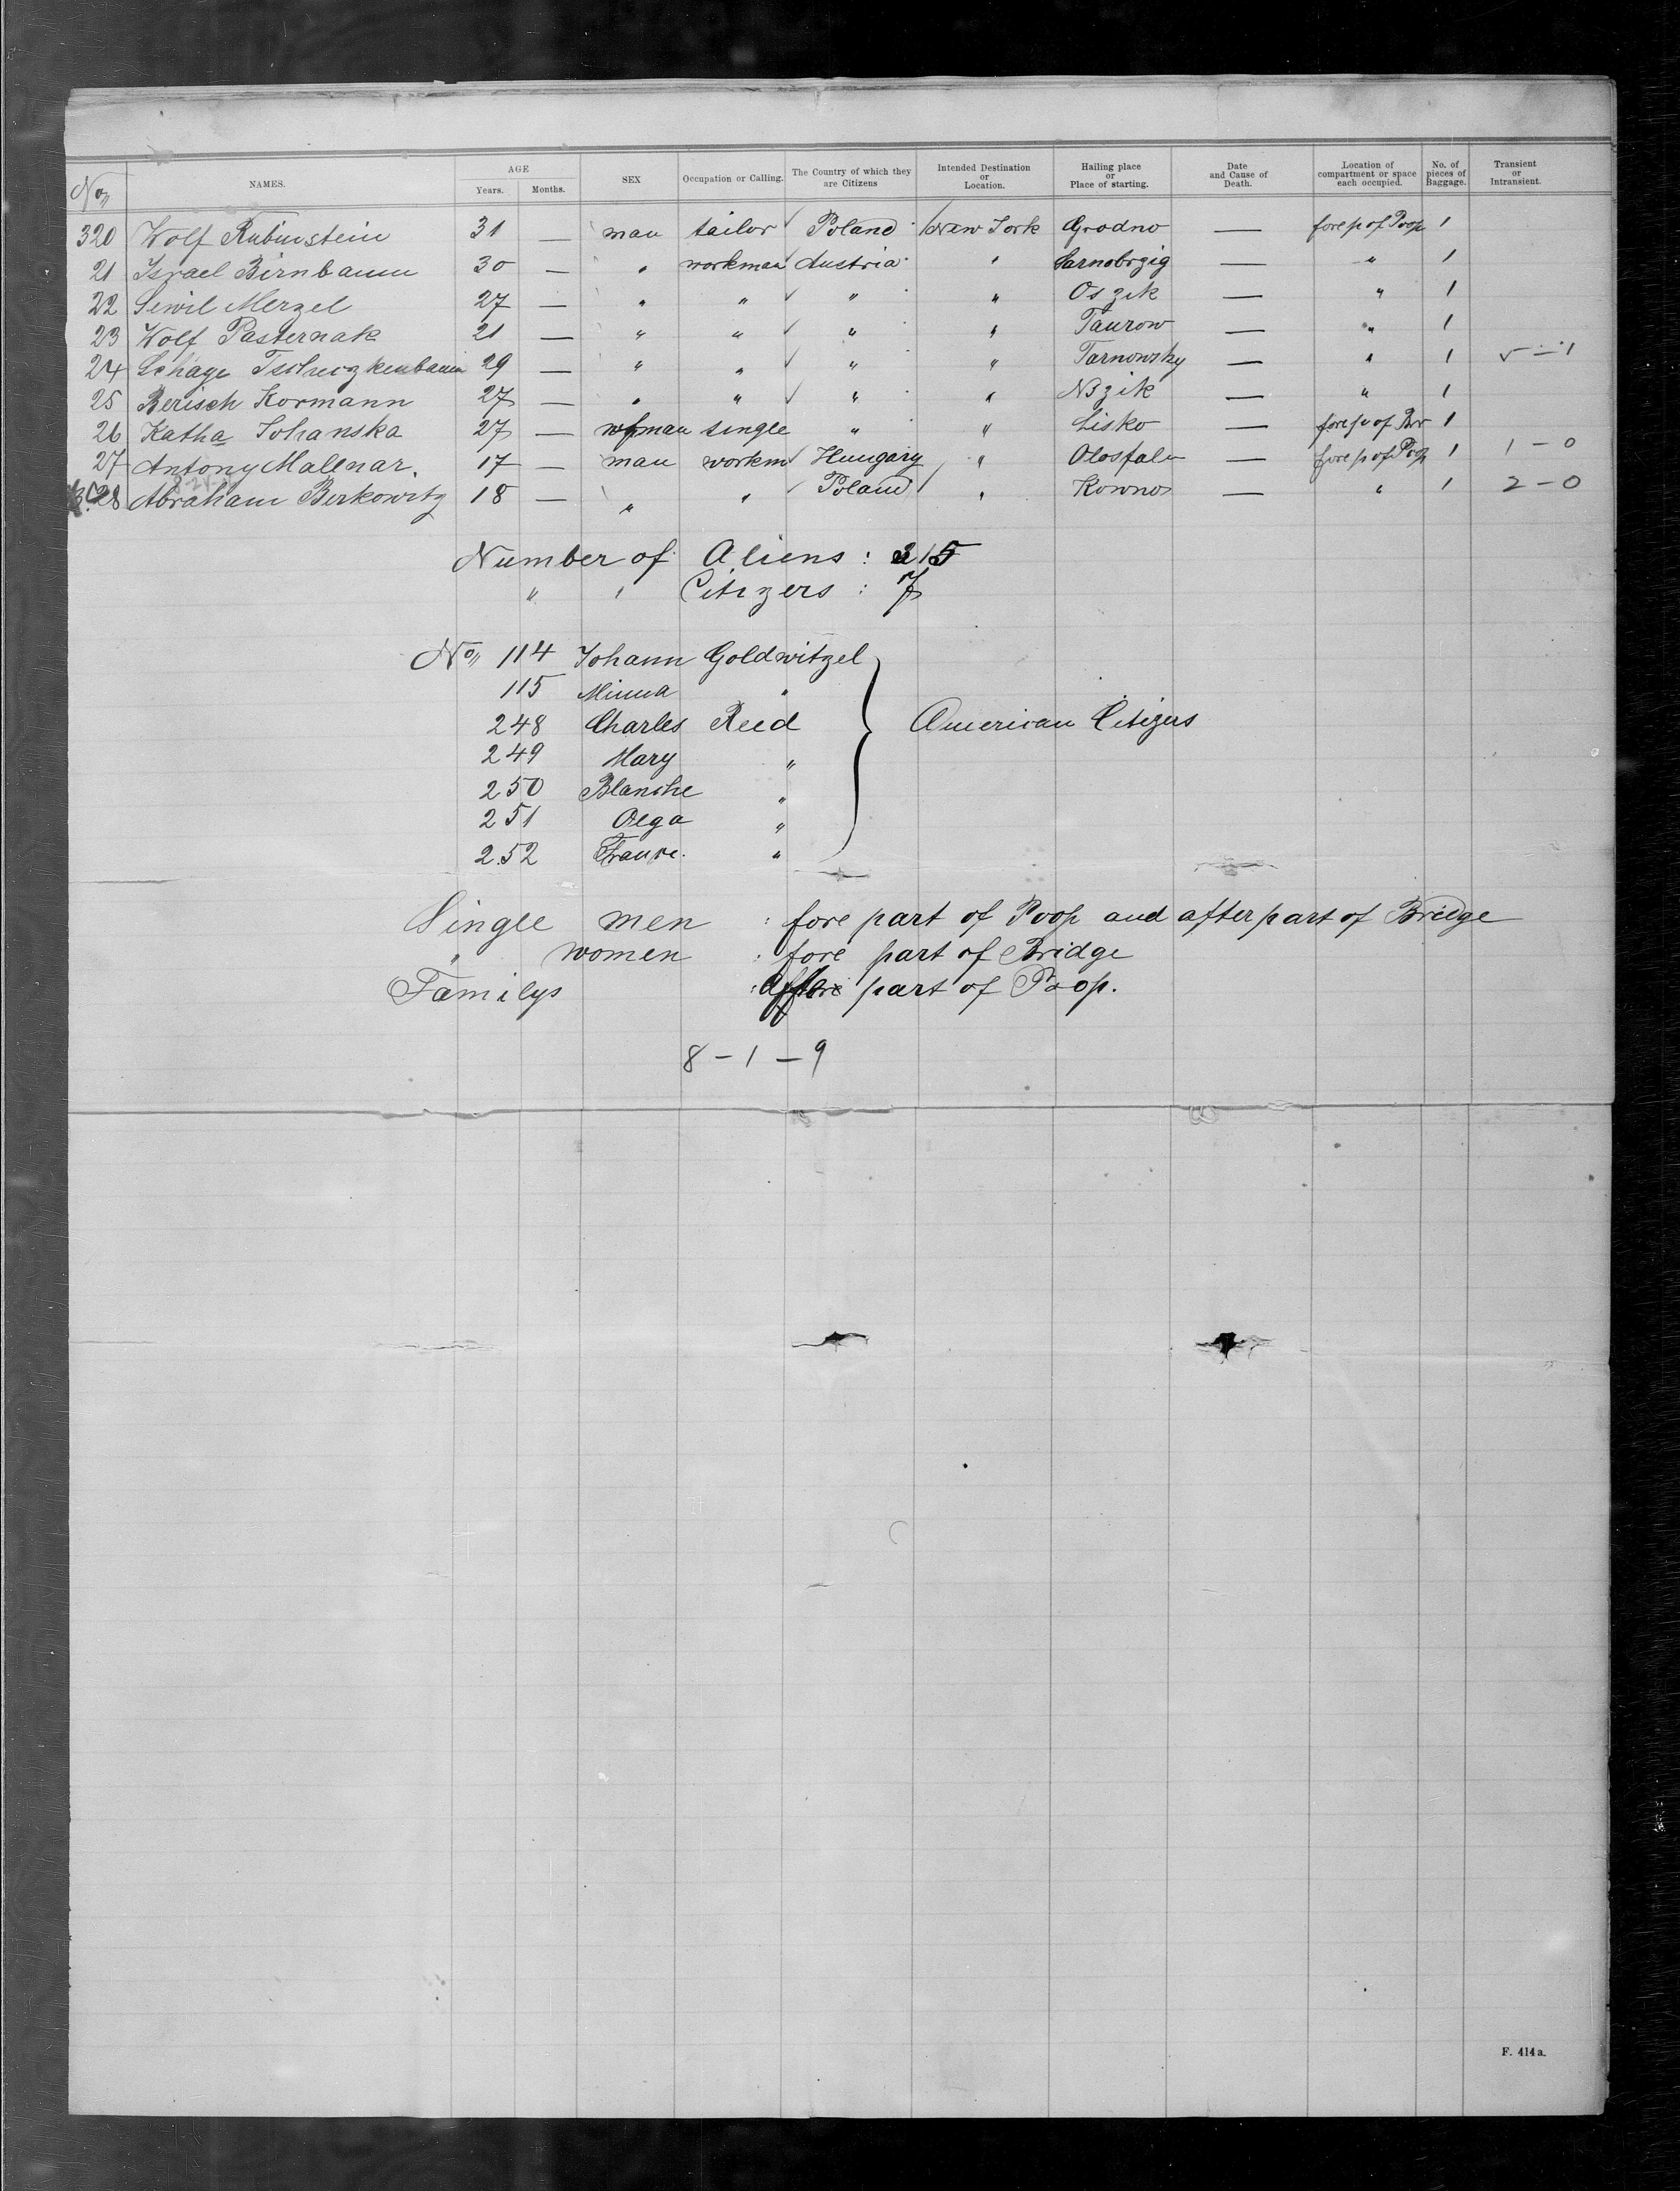 No. NAMES. AGE Years. Months. SEX Occupation or Calling. The Country of which they are Citizens Intended Destination or Location. Hailing place or Place of starting. Date and Cause of Death. Location of compartment or space each occupied. No. of pieces of Baggage. Transient or Intransient.
320 Wolf Rubinstein 31 — man tailor Poland New York Grodno — fore p of Poop 1
21 Israel Birnbaum 30 — " workman Austria " Sarnobrzig — " 1
22 Sewil Merzel 27 — " " " " Oszik — " 1
23 Wolf Pasternak 21 — " " " " Taurow — " 1
24 Schage 29 — " " " " Tarnowsky — " 1 5 – 1
25 Berisch Kormann 27 — " " " " Nszik — " 1
26 Katha Sohanska 27 — woman single " " Lisko — fore p of Br 1
27 Antony Mallnar. 17 — man workm Hungary " — fore p of Poop 1 1 – 0
28 Abraham Berkowitz 18 — " " Poland " Kowno — " 1 2 – 0
Number of Aliens : 215
" " Citizers : 7
No. 114 Johann Goldwitzel
115 Minna "
248 Charles Reed
American Citizers
249 Mary "
250 Blanche "
251 Olga "
252 "
Single men : fore part of Poop and after part of Bridge
" women : fore part of Bridge
Familys : After part of Poop.
8 – 1 – 9
F. 414a.